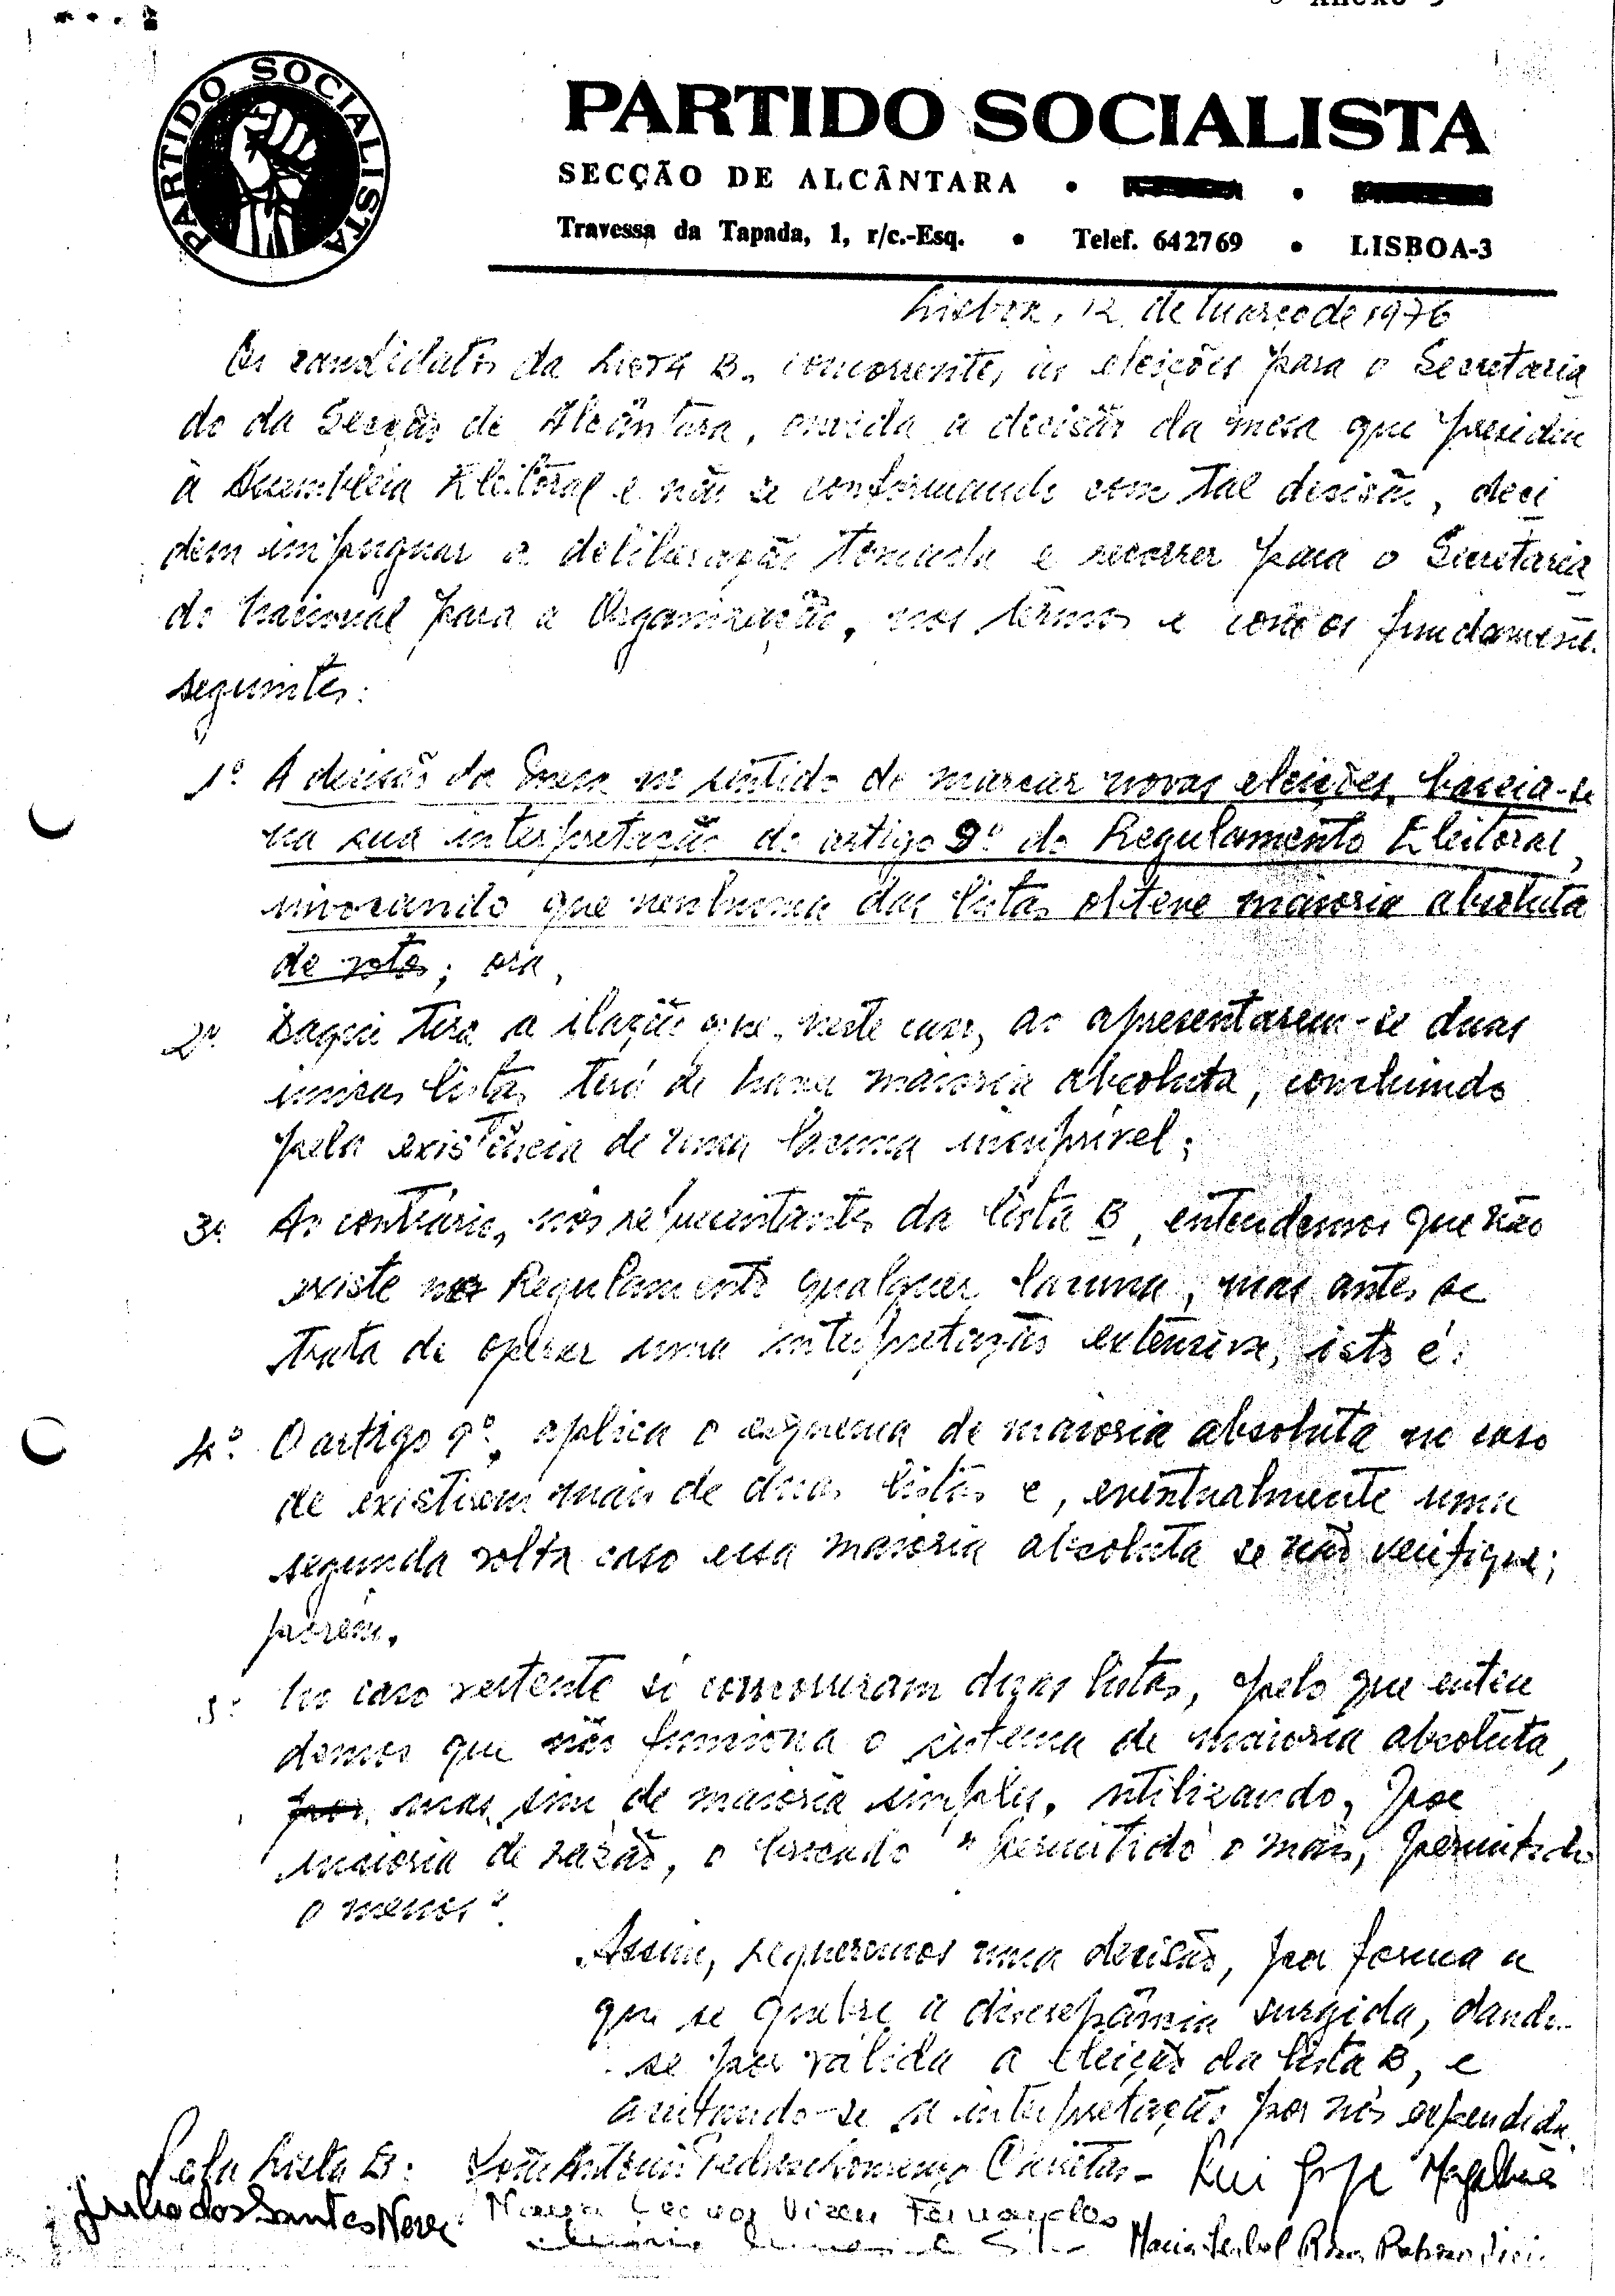 Anexo 5
PARTIDO SOCIALISTA
PARTIDO SOCIALISTA
SECÇÃO DE ALCÂNTARA • •
Travessa da Tapada, 1, r/c.-Esq. • Telef. 642769 • LISBOA-3
Lisboa, 12 de Março de 1976
Os candidatos da Lista B, concorrentes às eleições para o Secretaria
do da Secção de Alcântara, ouvida a decisão da mesa que presidiu
à Assembleia Eleitoral e não se conformando com tal decisão, deci
dem impugnar a deliberação tomada e recorrer para o Secretaria
do Nacional para a Organização, nos termos e com os fundament.
seguintes:
1º A decisão da Mesa no sentido de marcar novas eleições, baseia-se
na sua interpretação do artigo 9º do Regulamento Eleitoral,
invocando que nenhuma das listas obteve maioria absoluta
de votos; ora,
2º Daqui tira a ilação que, neste caso, ao apresentarem-se duas
únicas listas terá de haver maioria absoluta, concluindo
pela existência de uma lacuna insuprível;
3º Ao contrário, nós representantes da lista B, entendemos que não
existe no Regulamento qualquer lacuna, mas antes se
trata de operar uma interpretação extensiva, isto é:
4º O artigo 9º, aplica o esquema de maioria absoluta no caso
de existirem mais de duas listas e, eventualmente uma
segunda volta caso essa maioria absoluta se não verifique;
porém,
5º No caso vertente só concorreram duas listas, pelo que enten
demos que não funciona o sistema de maioria absoluta,
por mas sim de maioria simples, utilizando, por
maioria de razão, o brocado "permitido o mais, permitido
o menos".
Assim, requeremos uma decisão, por forma a
que se quebre a discrepância surgida, dando-
-se por válida a eleição da lista B, e
aceitando-se a interpretação por nós expendida.
Pela Lista B: João António Pedroso Lourenço Chieitas - Rui Jorge Magalhães
Julio dos Santos Neves Maria Leonor Vizeu Fernandes
Maria Isabel Rosa